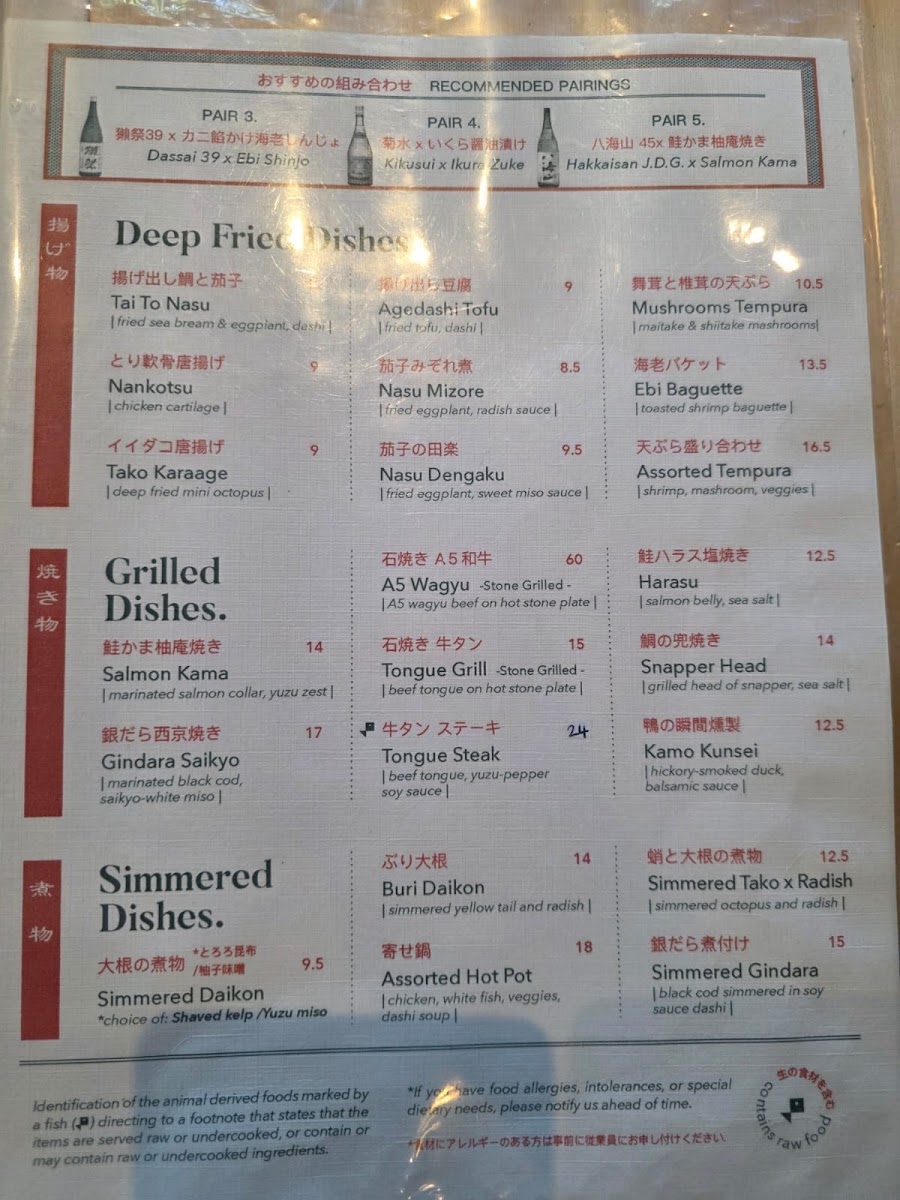 おすすめの組み合わせ RECOMMENDED PAIRINGS
PAIR 3.
獺祭39 x カニ餡かけ海老しんじょ
Dassai 39 x Ebi Shinjo
PAIR 4.
菊水 x いくら醤油漬け
Kikusui x Ikura Zuke
PAIR 5.
八海山 45x 鮭かま柚庵焼き
Hakkaisan J.D.G. x Salmon Kama
揚げ物
Deep Fried Dishes
揚げ出し鯛と茄子
Tai To Nasu
| fried sea bream & eggplant, dashi |
とり軟骨唐揚げ 9
Nankotsu
| chicken cartilage |
イイダコ唐揚げ 9
Tako Karaage
| deep fried mini octopus |
揚げ出し豆腐 9
Agedashi Tofu
| fried tofu, dashi |
茄子みぞれ煮 8.5
Nasu Mizore
| fried eggplant, radish sauce |
茄子の田楽 9.5
Nasu Dengaku
| fried eggplant, sweet miso sauce |
舞茸と椎茸の天ぷら 10.5
Mushrooms Tempura
| maitake & shiitake mashrooms|
海老バケット 13.5
Ebi Baguette
| toasted shrimp baguette |
天ぷら盛り合わせ 16.5
Assorted Tempura
| shrimp, mashroom, veggies |
焼き物
Grilled
Dishes.
鮭かま柚庵焼き 14
Salmon Kama
| marinated salmon collar, yuzu zest |
銀だら西京焼き 17
Gindara Saikyo
| marinated black cod,
saikyo-white miso |
石焼き A5和牛 60
A5 Wagyu -Stone Grilled -
| A5 wagyu beef on hot stone plate |
石焼き 牛タン 15
Tongue Grill -Stone Grilled -
| beef tongue on hot stone plate |
牛タン ステーキ 24
Tongue Steak
| beef tongue, yuzu-pepper
soy sauce |
鮭ハラス塩焼き 12.5
Harasu
| salmon belly, sea salt |
鯛の兜焼き 14
Snapper Head
| grilled head of snapper, sea salt |
鴨の瞬間燻製 12.5
Kamo Kunsei
| hickory-smoked duck,
balsamic sauce |
煮物
Simmered
Dishes.
大根の煮物 *とろろ昆布
/柚子味噌 9.5
Simmered Daikon
*choice of: Shaved kelp /Yuzu miso
ぶり大根 14
Buri Daikon
| simmered yellow tail and radish |
寄せ鍋 18
Assorted Hot Pot
| chicken, white fish, veggies,
dashi soup |
蛸と大根の煮物 12.5
Simmered Tako x Radish
| simmered octopus and radish |
銀だら煮付け 15
Simmered Gindara
| black cod simmered in soy
sauce dashi |
Identification of the animal derived foods marked by
a fish ( ) directing to a footnote that states that the
items are served raw or undercooked, or contain or
may contain raw or undercooked ingredients.
*If you have food allergies, intolerances, or special
dietary needs, please notify us ahead of time.
*食材にアレルギーのある方は事前に従業員にお申し付けください.
生の食材を含む
contains raw food